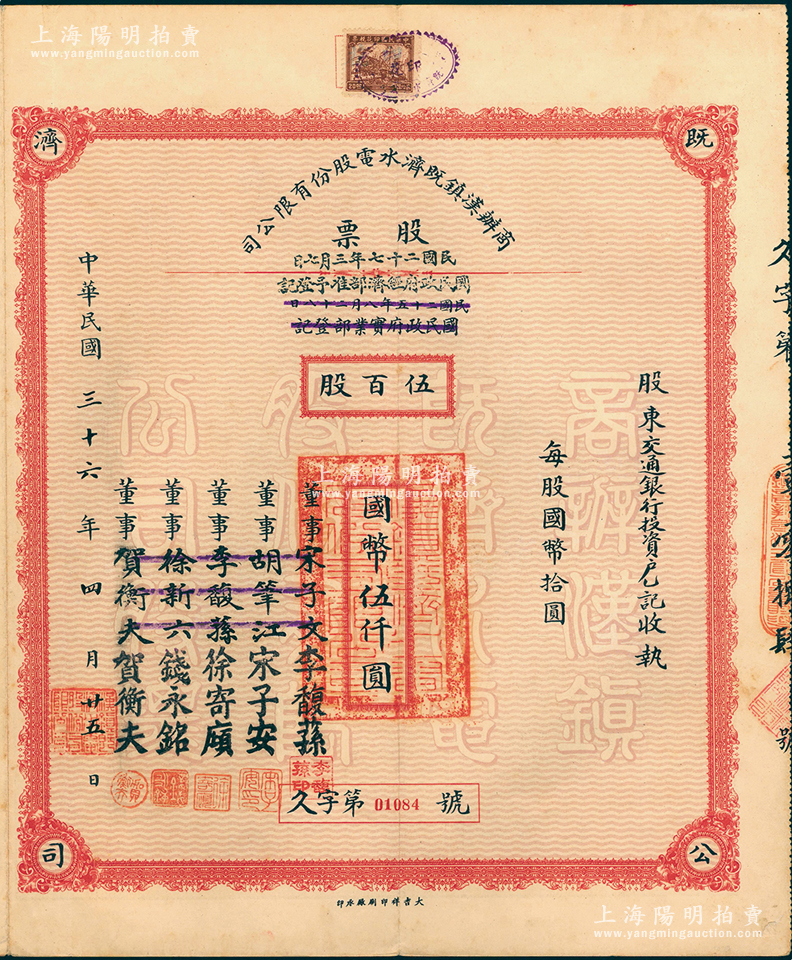 上海陽明拍賣
www.yangmingauction.com
既
濟
公
司
商辦漢鎮既濟水電股份有限公司
股票
民國二十七年三月七日
國民政府經濟部准予登記
民國二十五年八月二十八日
國民政府實業部登記
伍百股
股東交通銀行投資戶乙記收執
每股國幣拾圓
國幣伍仟圓
上海陽明拍賣
www.yangmingauction.com
董事宋子文李馥蓀
董事胡筆江宋子安
董事李馥蓀徐寄廎
董事徐新六錢永銘
董事賀衡夫賀衡夫
中華民國三十六年四月廿五日
李馥蓀印
久字第01084號
商辦漢鎮
久字第
號
大吉祥印刷廠承印
上海陽明拍賣
www.yangmingauction.com